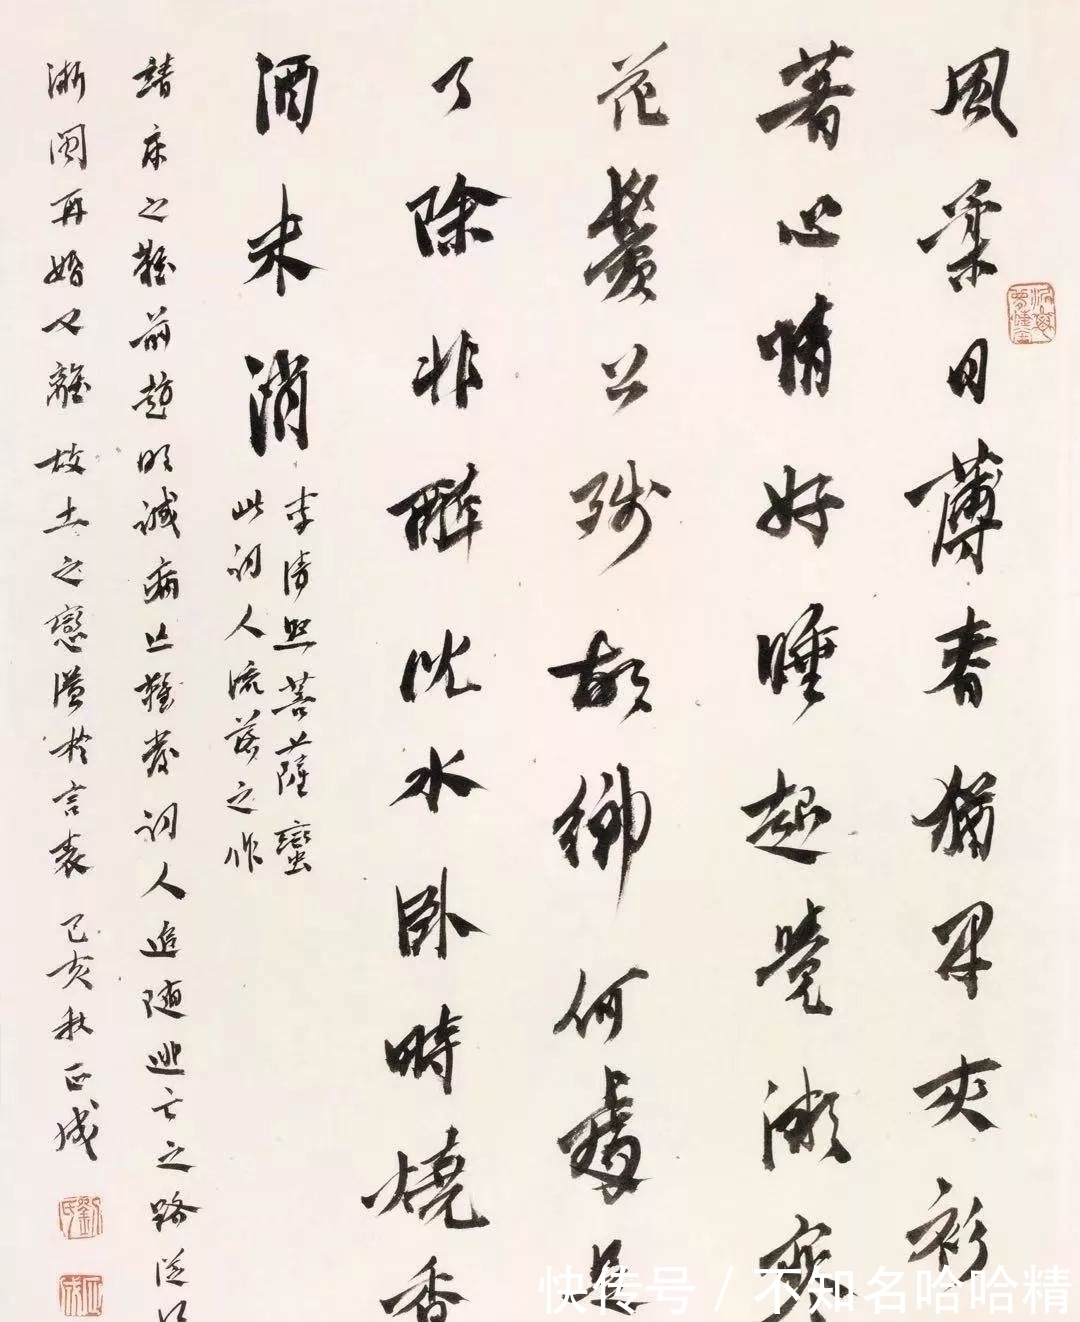 風柔日薄春猶早夾衫
著心情好睡起覺微寒
花鬢上殘故鄉何處是
了除非醉沈水臥時燒香
酒未消
李清照菩薩蠻
此詞人流落之作
靖康之難前趙明誠病亡難發詞人追隨逃亡之路從
浙閩再婚又離故土之戀溢於言表 己亥秋正成
劉氏
正成
快传号 / 不知名哈哈精